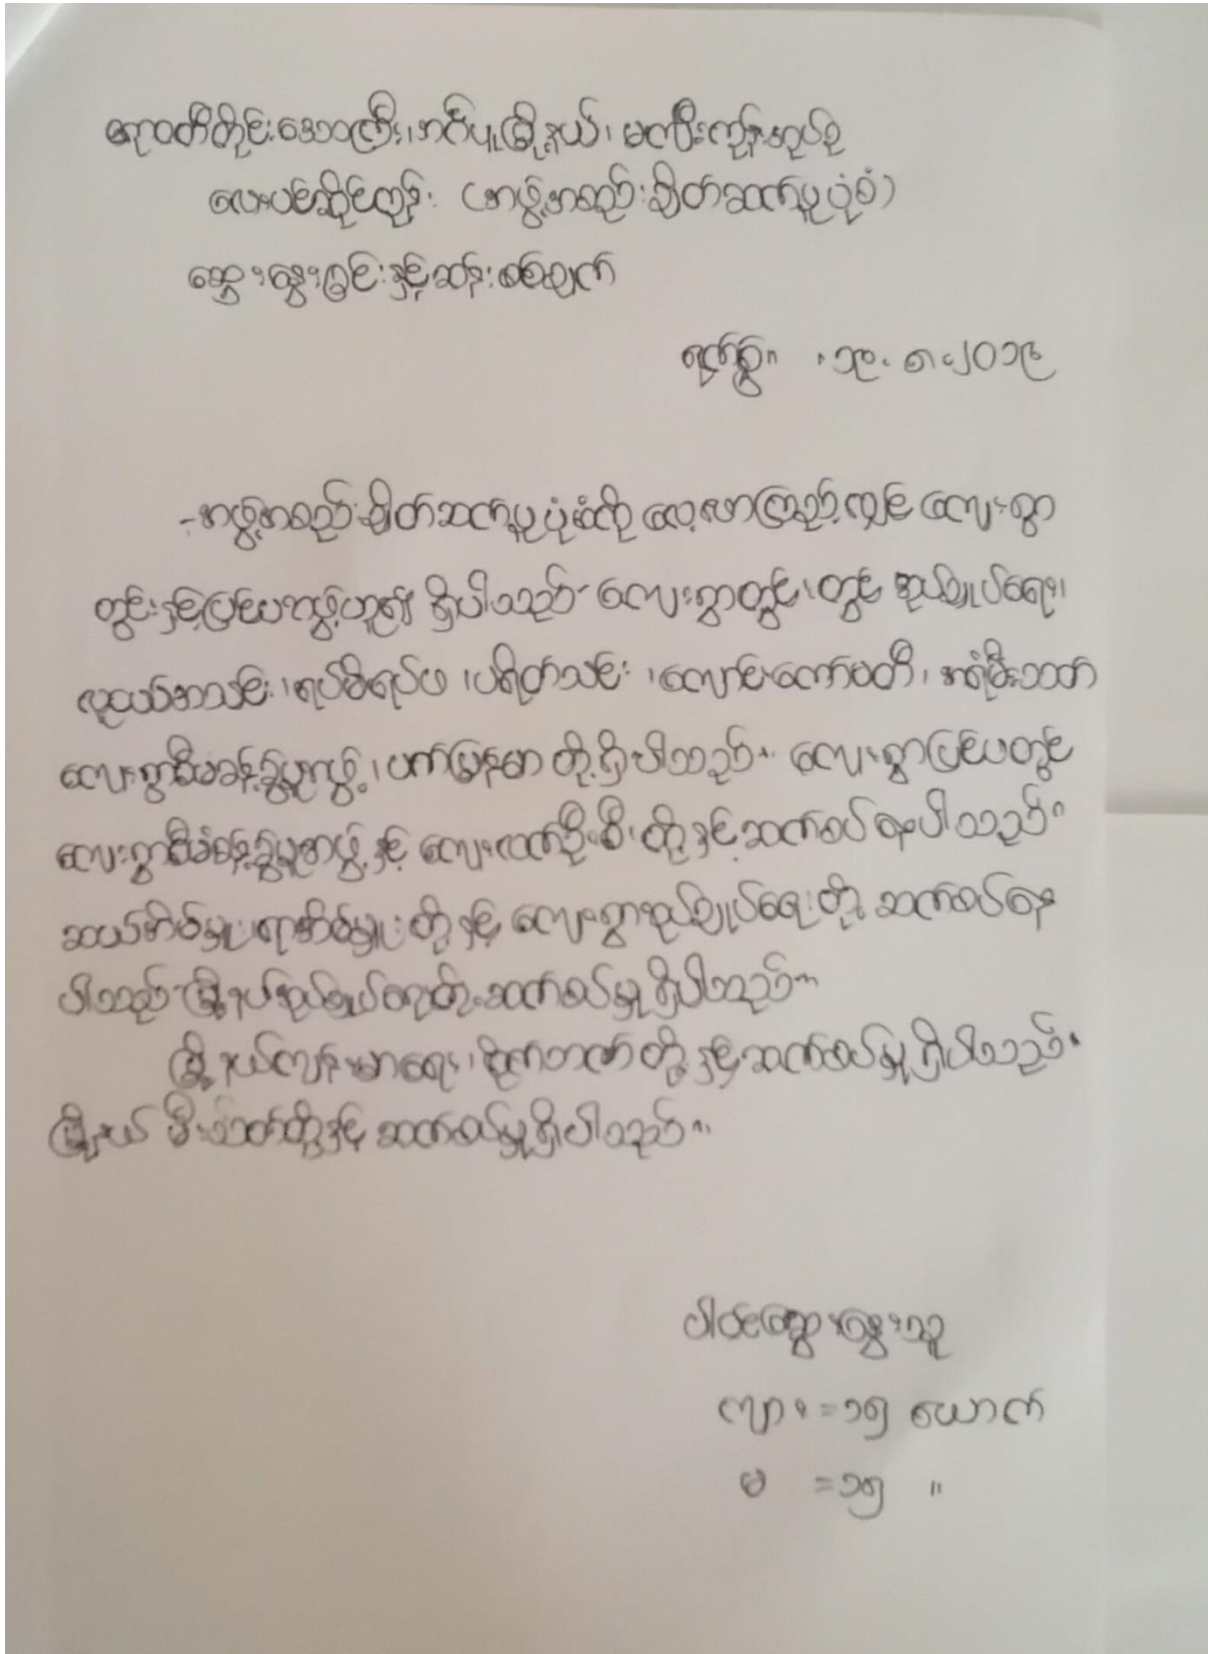 ဧရာဝတီတိုင်းဒေသကြီး၊ အင်္ဂပူမြို့နယ်၊ မကျီးကုန်းအုပ်စု
လေးပင်ဆိုင်ကုန်း (အဖွဲ့အစည်းချိတ်ဆက်မှုပုံစံ)
ဆွေးနွေးခြင်းနှင့်ဆန်းစစ်ချက်
ရက်စွဲ။ ၁၉.၈.၂၀၁၉
-အဖွဲ့အစည်းချိတ်ဆက်မှုပုံစံကို လေ့လာကြည့်လျှင် ကျေးရွာ
တွင်းနှင့်ပြင်ပအဖွဲ့ဟူ၍ ရှိပါသည်။ ကျေးရွာတွင်းတွင် အုပ်ချုပ်ရေး၊
လူငယ်အသင်း၊ ရပ်မိရပ်ဖ၊ ပရိတ်သင်း၊ ကျောင်းကော်မတီ၊ အရံမီးသတ်
ကျေးရွာစီမံခန့်ခွဲမှုအဖွဲ့၊ ပက်မြန်မာ တို့ရှိပါသည်။ ကျေးရွာပြင်ပတွင်
ကျေးရွာစီမံခန့်ခွဲမှုအဖွဲ့နှင့် ကျေးလက်ဦးစီးတို့နှင့်ဆက်စပ်နေပါသည်။
ဆယ်အိမ်မှူး ရာအိမ်မှူးတို့နှင့် ကျေးရွာအုပ်ချုပ်ရေးတို့ ဆက်စပ်နေ
ပါသည်။ မြို့နယ်အုပ်ချုပ်ရေးတို့ ဆက်စပ်မှုရှိပါသည်။
မြို့နယ်ကျန်းမာရေး၊ တို့နှင့်ဆက်စပ်မှုရှိပါသည်။
မြို့နယ် မီးသတ်တို့နှင့် ဆက်စပ်မှုရှိပါသည်။
ပါဝင်ဆွေးနွေးသူ
ကျား =၁၅ ယောက်
မ =၁၅ "